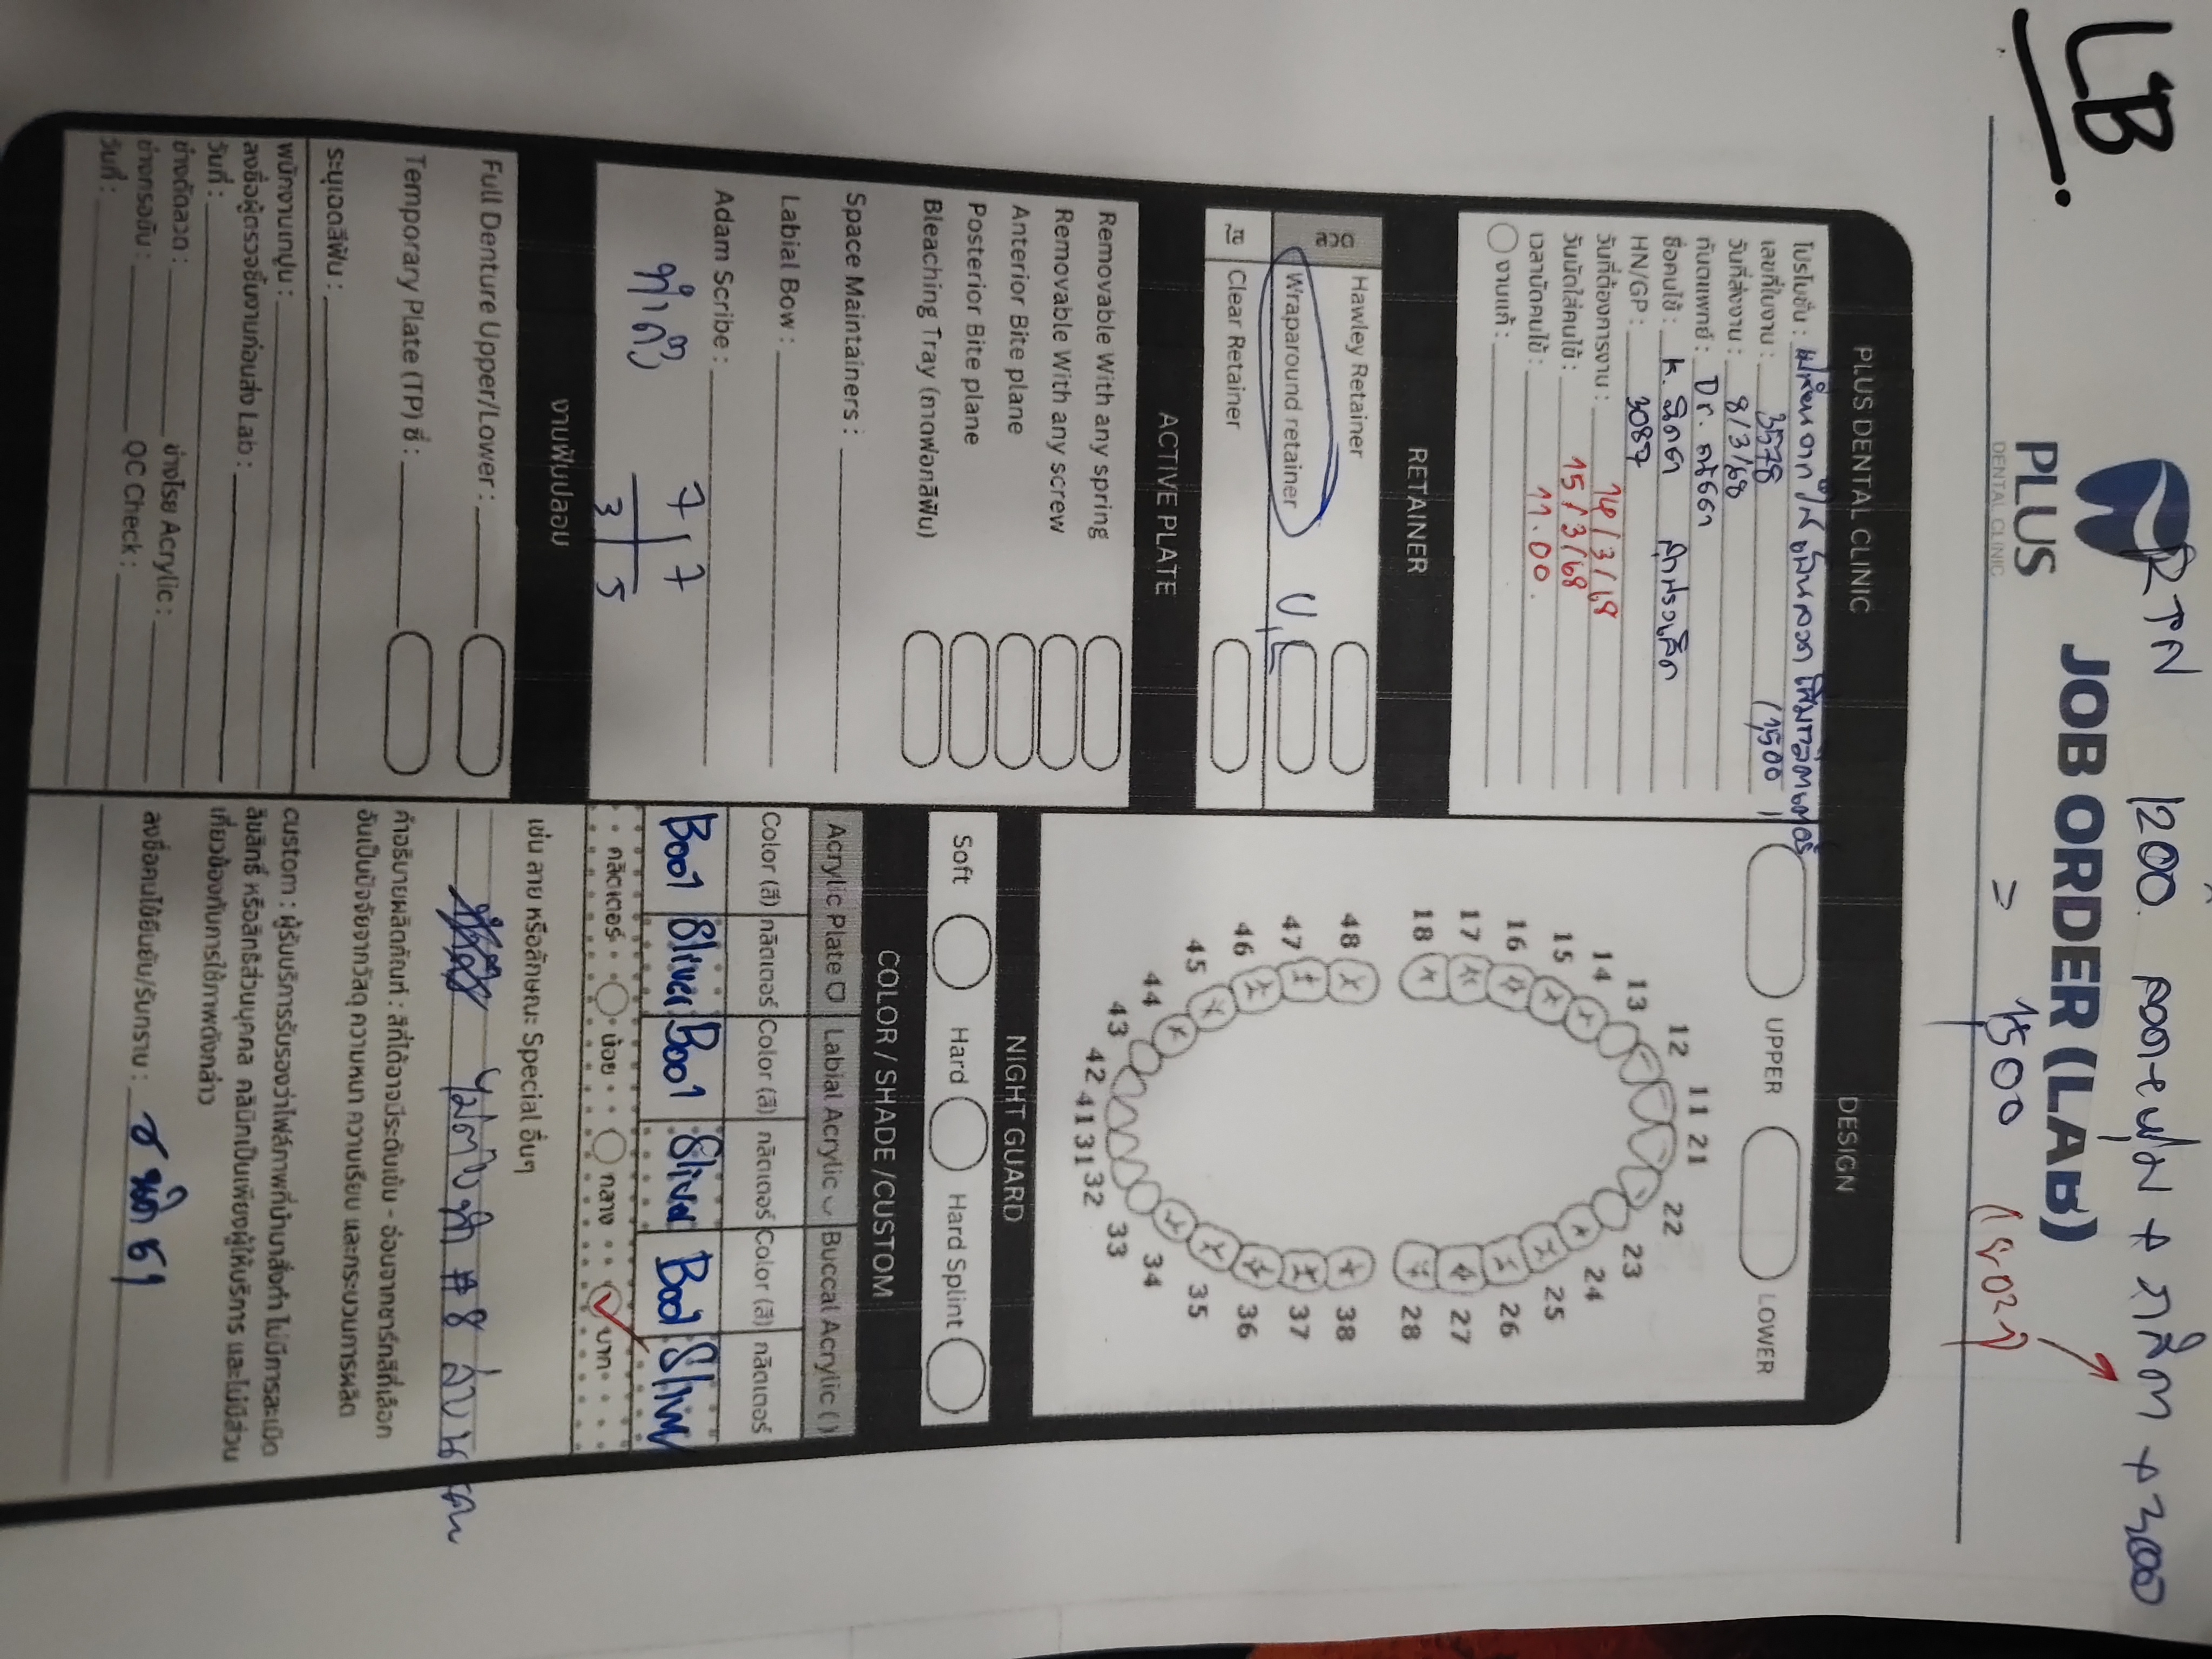 LB
RTN 1200. ลวดหุ้ม + กลิต + 300
PLUS
DENTAL CLINIC
JOB ORDER (LAB)
= 1500
PLUS DENTAL CLINIC
โปรโมชั่น :
เลขที่ใบงาน : 3578 (1,500)
วันที่ส่งงาน : 8/3/68
ทันตแพทย์ : Dr.
ชื่อคนไข้ : K.
HN/GP : 3087
วันที่ต้องการงาน : 14/3/68
วันนัดใส่คนไข้ : 15/3/68
เวลานัดคนไข้ : 11.00.
งานแก้ :
RETAINER
Hawley Retainer
ลวด
Wraparound retainer U, L
ใส
Clear Retainer
ACTIVE PLATE
Removable With any spring
Removable With any screw
Anterior Bite plane
Posterior Bite plane
Bleaching Tray (ถาดฟอกสีฟัน)
Space Maintainers :
Labial Bow :
Adam Scribe :
7 7
3 5
งานฟันปลอม
Full Denture Upper/Lower :
Temporary Plate (TP) ซี่ :
ระบุเฉดสีฟัน :
พนักงานเทปูน :
ลงชื่อผู้ตรวจชิ้นงานก่อนส่ง Lab :
วันที่ :
ช่างดัดลวด : ช่างโรย Acrylic :
ช่างกรอขัด : QC Check :
วันที่ :
DESIGN
UPPER LOWER
11 21
12 22
13 23
14 24
15 25
16 26
17 27
18 28
48 38
47 37
46 36
45 35
44 34
43 33
42 41 31 32
NIGHT GUARD
Soft Hard Hard Splint
COLOR / SHADE /CUSTOM
Acrylic Plate Labial Acrylic Buccal Acrylic ( )
Color (สี) กลิตเตอร์ Color (สี) กลิตเตอร์ Color (สี) กลิตเตอร์
B001 Sliver B001 Sliver B001 Sliver
กลิตเตอร์ น้อย กลาง มาก
เช่น ลาย หรือลักษณะ Special อื่นๆ
#8
คำอธิบายผลิตภัณฑ์ : สีที่ได้อาจมีระดับเข้ม - อ่อนจากชาร์ทสีที่เลือก
อันเป็นปัจจัยจากวัสดุ ความหนา ความเรียบ และกระบวนการผลิต
Custom : ผู้รับบริการรับรองว่าไฟล์ภาพที่นำมาสั่งทำ ไม่มีการละเมิด
ลิขสิทธิ์ หรือสิทธิส่วนบุคคล คลินิกเป็นเพียงผู้ให้บริการ และไม่มีส่วน
เกี่ยวข้องกับการใช้ภาพดังกล่าว
ลงชื่อคนไข้ยืนยัน/รับทราบ :